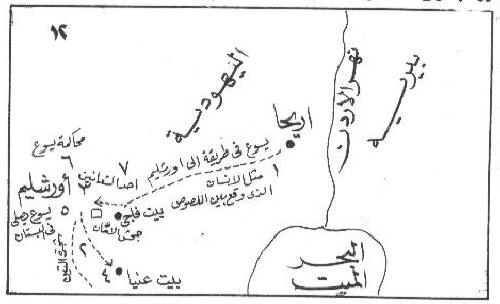 ١٢
اليهودية
نهر الاردن
بيرية
اريحا
محاكمة يسوع
٦
يسوع فى طريقة الى اورشليم
١
مثل الانسان
الذى وقع بين اللصوص
٧
اورشليم ٣
بيت فاجى
٥
يسوع يصلى
فى البستان
٢
٤
بيت عنيا
البحر
الميت